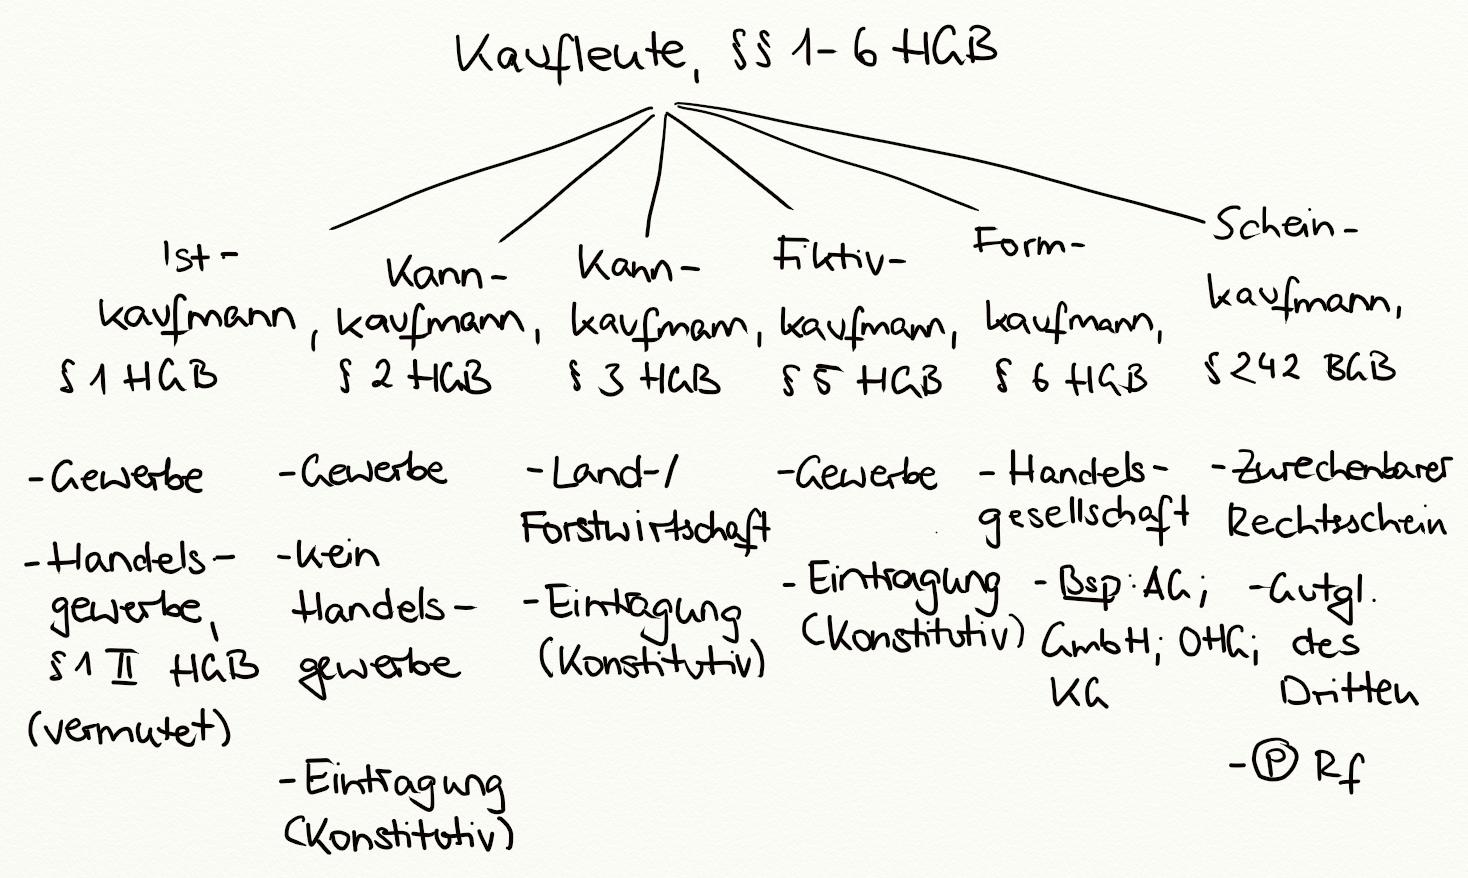 Kaufleute, §§ 1-6 HGB
Ist-
kaufmann,
§ 1 HGB
-Gewerbe
-Handels-
gewerbe,
§ 1 II HGB
(vermutet)
Kann-
kaufmann,
§ 2 HGB
-Gewerbe
-kein
Handels-
gewerbe
-Eintragung
(Konstitutiv)
Kann-
kaufmann,
§ 3 HGB
-Land-/
Forstwirtschaft
-Eintragung
(Konstitutiv)
Fiktiv-
kaufmann,
§ 5 HGB
-Gewerbe
-Eintragung
(Konstitutiv)
Form-
kaufmann,
§ 6 HGB
-Handels-
gesellschaft
-Bsp: AG;
GmbH; OHG;
KG
Schein-
kaufmann,
§ 242 BGB
-Zurechenbarer
Rechtsschein
-Gutgl.
des
Dritten
-Ⓟ Rf